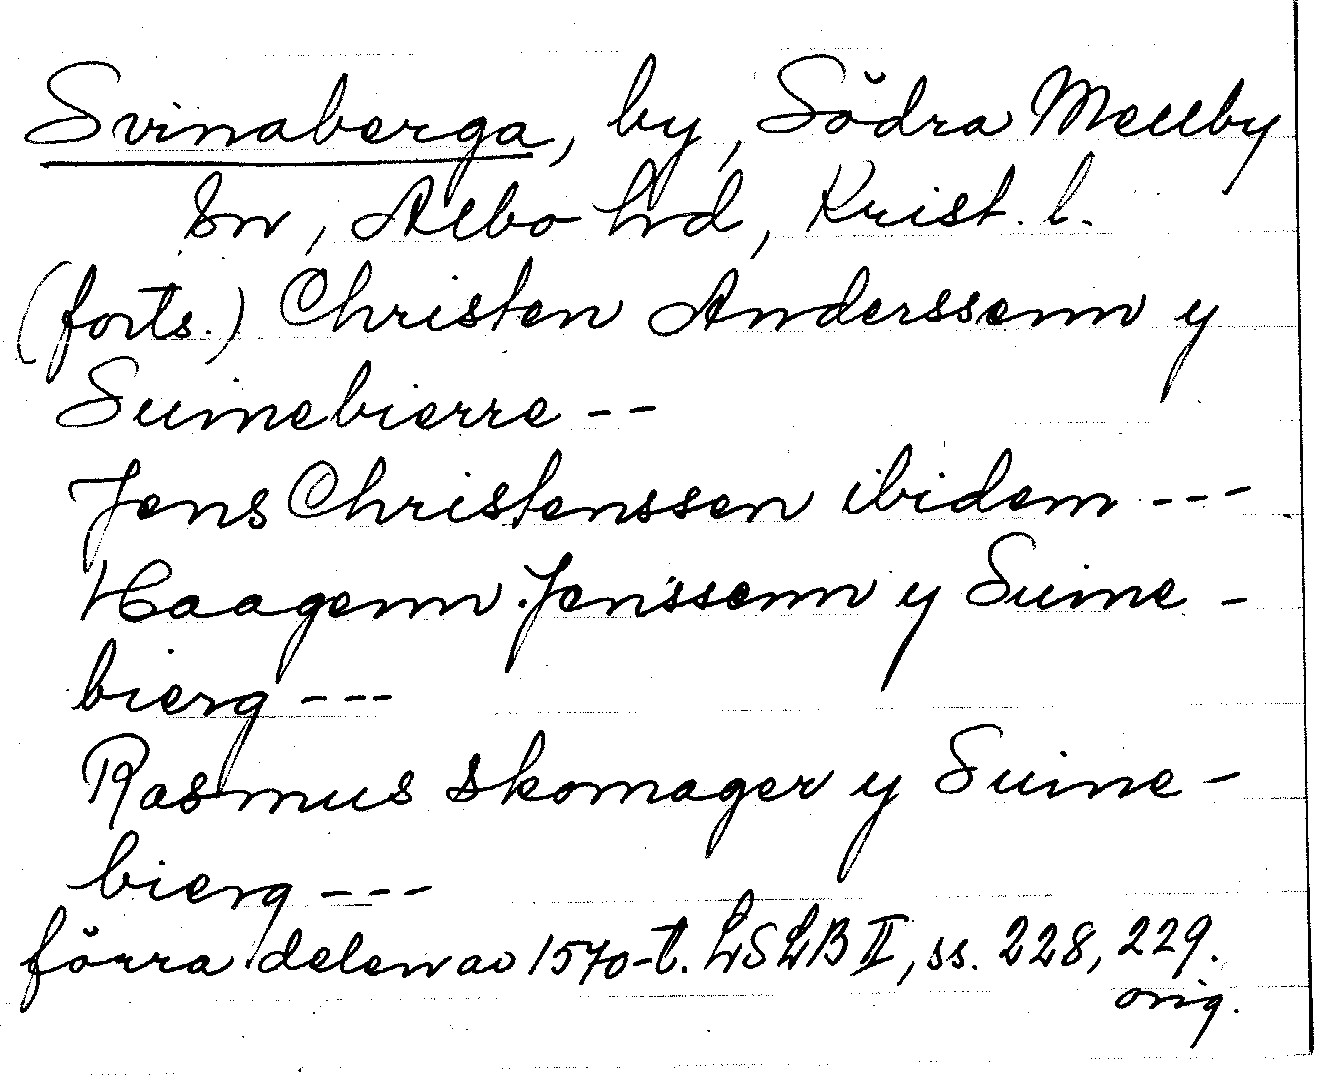 Svinaberga, by, Södra Mellby
sn, Albo hd, Krist. l.
(forts.) Christen Anderssenn y
Suinebierre --
Jens Christenssen ibidem ---
Haagenn Jenssenn y Suine-
bierg ---
Rasmus skomager y Suine-
bierg ---
förra delen av 1570-t. LSLB II, ss. 228, 229.
orig.